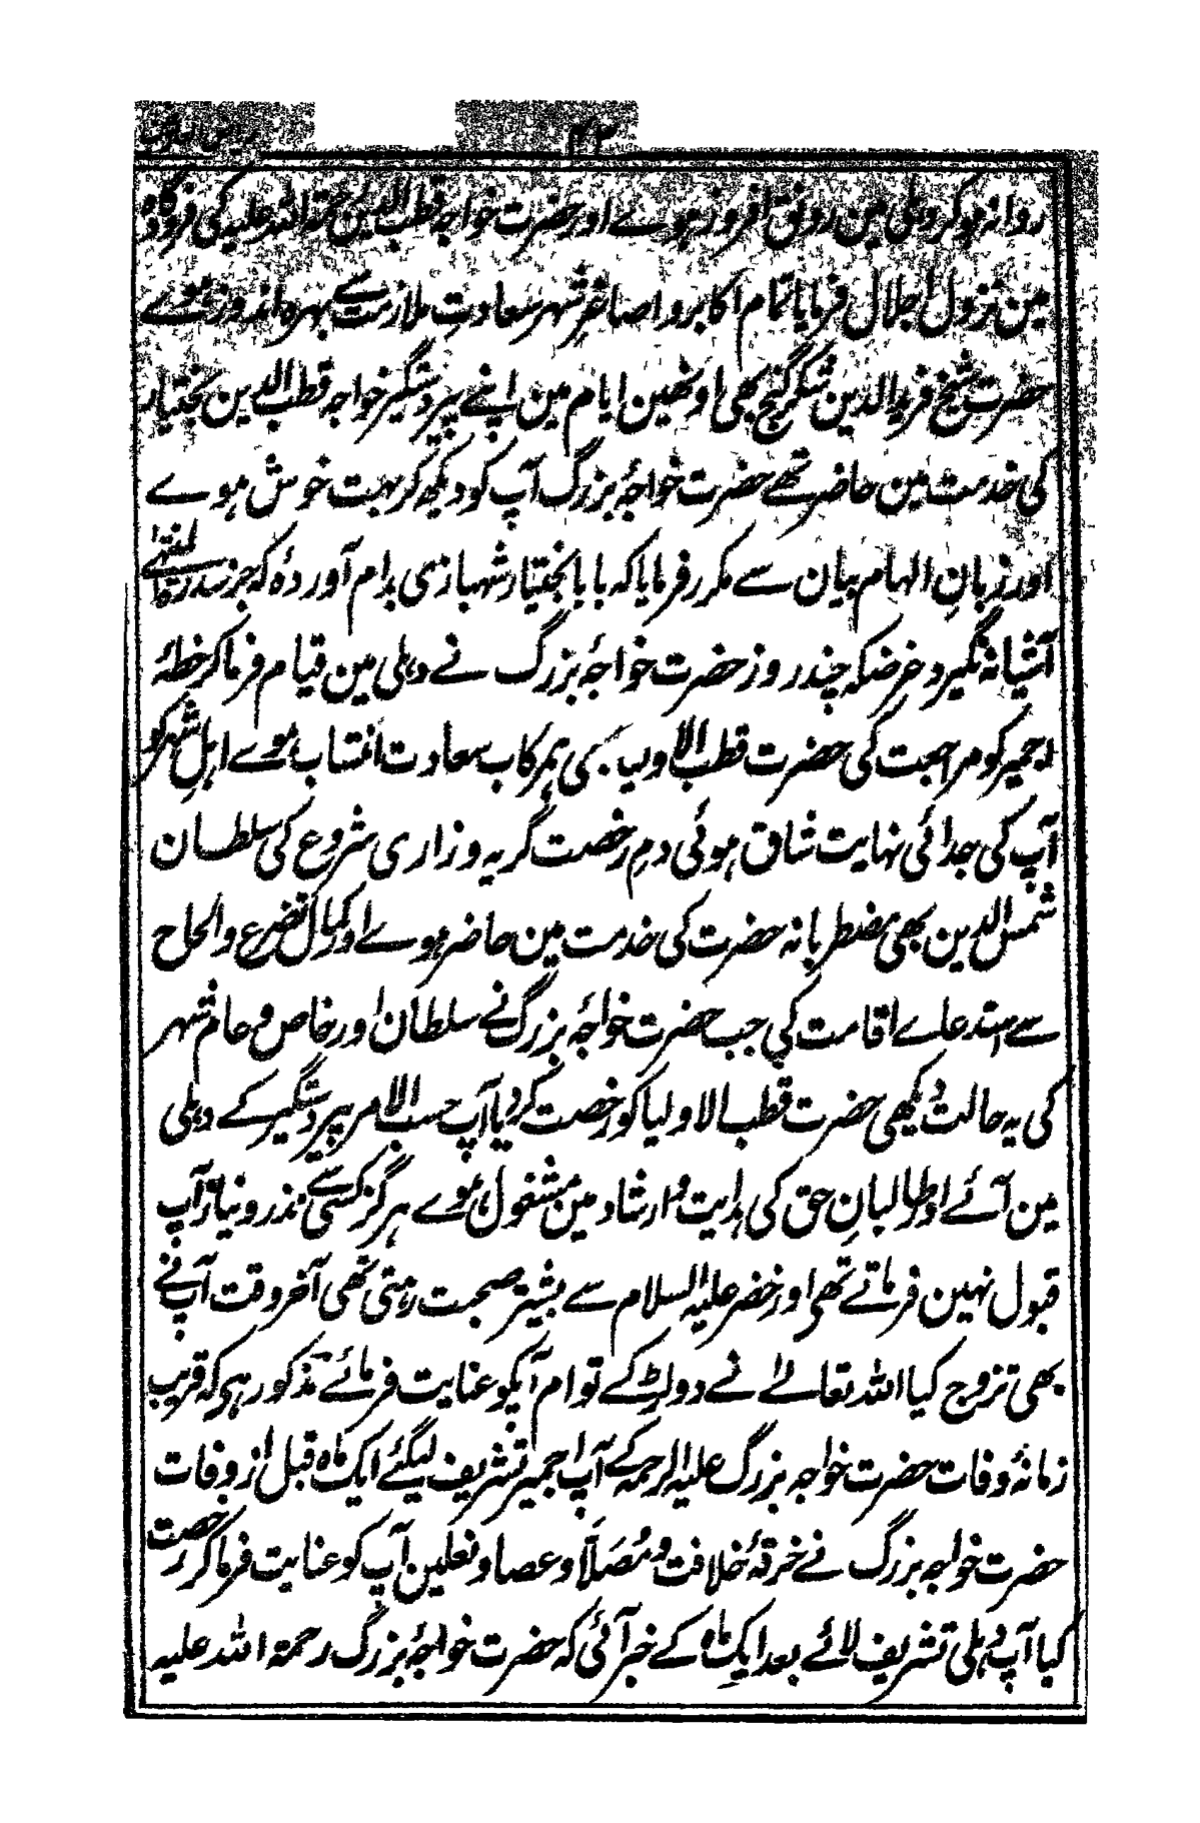 ۴۲
روانہ ہوکر دہلی مین رونق افروز ہوے اور حضرت خواجہ قطب الدین رحمۃ اللہ علیہ کی فرودگاہ
مین نزول اجلال فرمایا تمام اکابر و اصاغر شہر سعادتِ ملازمت سے بہرہ اندوز ہوے
حضرت شیخ فرید الدین شکر گنج بھی اونھین ایام مین اپنے پیر دستگیر خواجہ قطب الدین بختیار
کی خدمت مین حاضر تھے حضرت خواجۂ بزرگ آپ کو دیکھ کر بہت خوش ہوے
اور زبانِ الہام بیان سے مکرر فرمایا کہ بابا بختیار شہبازی بدام آوردۂ کہ جز بسدرۃ المنتہیٰ
آشیانہ نگیرد غرضکہ چند روز حضرت خواجۂ بزرگ نے دہلی مین قیام فرماکر خطۂ
اجمیر کو مراجعت کی حضرت قطب الاولیا بھی ہمرکاب سعادت انتساب ہوے اہلِ شہر کو
آپ کی جدائی نہایت شاق ہوئی دمِ رخصت گریہ و زاری شروع کی سلطان
شمس الدین بھی مضطربانہ حضرت کی خدمت مین حاضر ہوے اور کمال تضرع و الحاح
سے استدعاے اقامت کی جب حضرت خواجۂ بزرگ نے سلطان اور خاص و عام شہر
کی یہ حالت دیکھی حضرت قطب الاولیا کو رخصت کردیا آپ حسب الامر پیر دستگیر کے دہلی
مین آئے اور طالبانِ حق کی ہدایت و ارشاد مین مشغول ہوے ہرگز کسی سے نذر و نیاز آپ
قبول نہین فرماتے تھی اور خضر علیہ السلام سے بیشتر صحبت رہتی تھی آخر وقت آپ نے
بھی تزوج کیا اللہ تعالےٰ نے دو لڑکے توام آپکو عنایت فرمائے مذکور ہی کہ قریب
زمانۂ وفات حضرت خواجہ بزرگ علیہ الرحمہ کے آپ اجمیر تشریف لیگئے ایک ماہ قبل از وفات
حضرت خواجہ بزرگ نے خرقۂ خلافت و مُصَلّا و عصا و نعلین آپ کو عنایت فرماکر رخصت
کیا آپ دہلی تشریف لائے بعد ایک ماہ کے خبر آئی کہ حضرت خواجۂ بزرگ رحمۃ اللہ علیہ